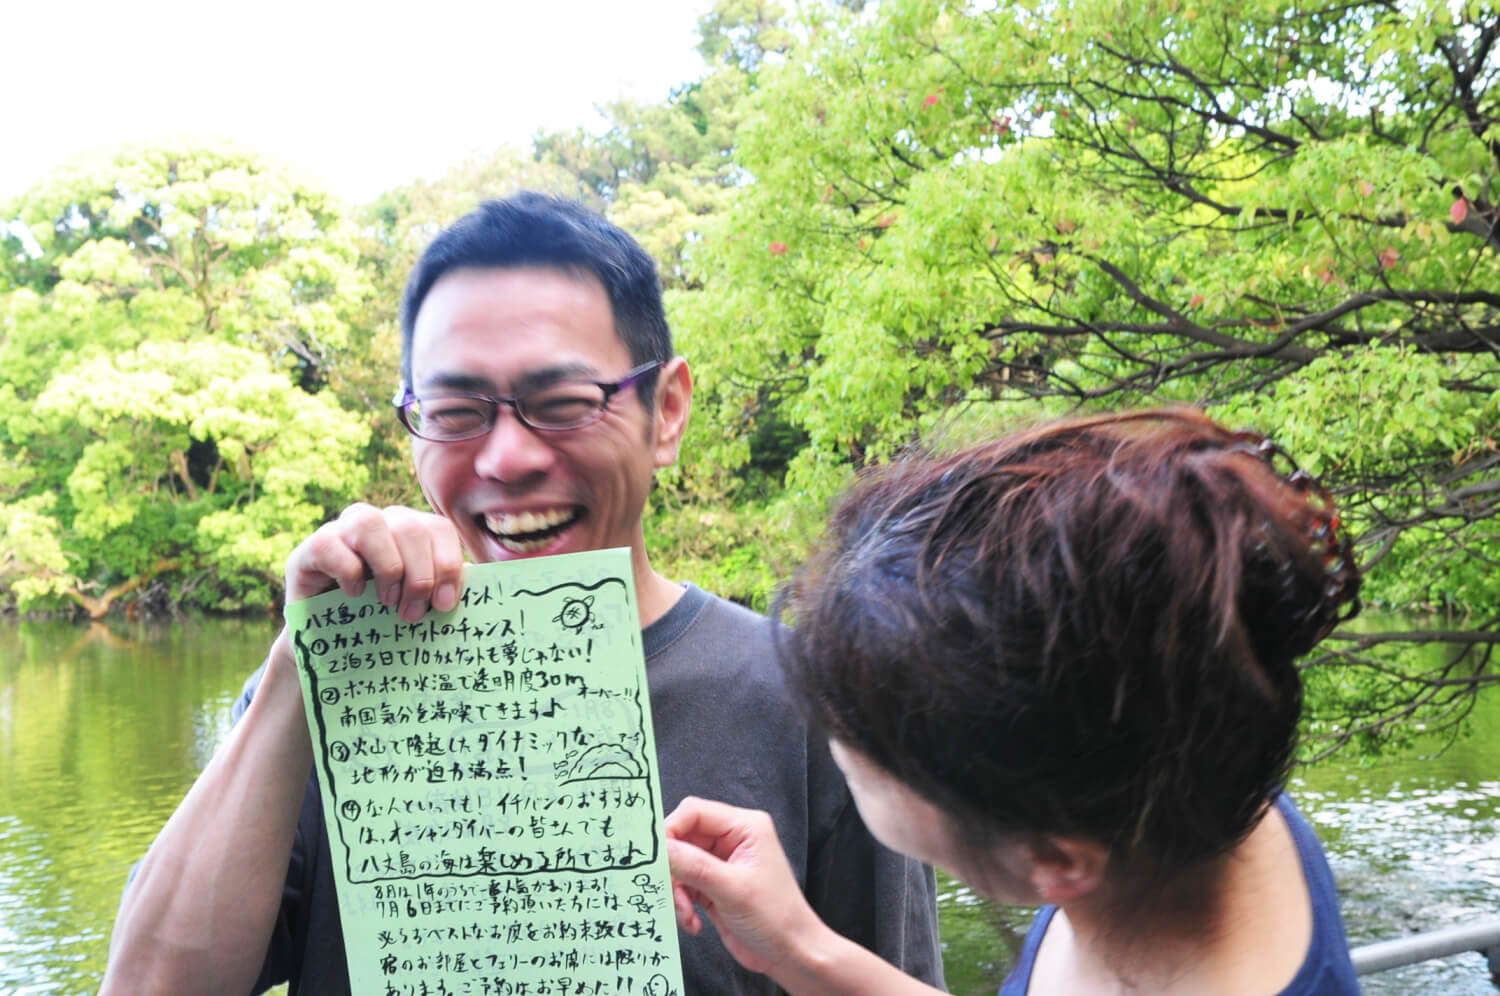 八丈島のオ イント!
①カメカードゲットのチャンス!
2泊3日で10カメゲットも夢じゃない!
②ポカポカ水温で透明度30m
オーバー!!
南国気分を満喫できます♪
③火山で隆起したダイナミックな
アーチ
地形が迫力満点!
④なんといっても!イチバンのおすすめ
は、オーシャンダイバーの皆さんでも
八丈島の海は楽しめる所です♪
8月は1年のうちで一番人気があります!
7月6日までにご予約頂いた方には
必らずベストなお席をお約束致します。
宿のお部屋とフェリーのお席には限りが
あります。ご予約はお早めに!!